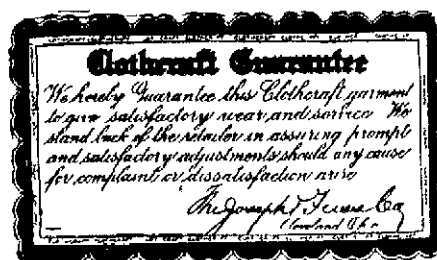 Clothcraft Guarantee
We hereby Guarantee this Clothcraft garment
to give satisfactory wear and service We
stand back of the retailer in assuring prompt
and satisfactory adjustments should any cause
for complaint or dissatisfaction arise
The Joseph & Feiss Co
Cleveland Ohio